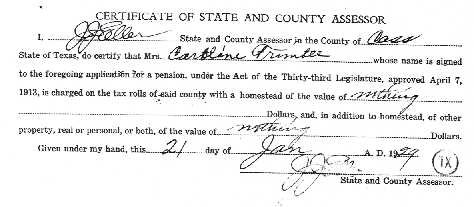 CERTIFICATE OF STATE AND COUNTY ASSESSOR
I, State and County Assessor in the County of Cass
State of Texas, do certify that Mrs. Caroline whose name is signed
to the foregoing application for a pension, under the Act of the Thirty-third Legislature, approved April 7,
1913, is charged on the tax rolls of said county with a homestead of the value of nothing
Dollars, and, in addition to homestead, of other
property, real or personal, or both, of the value of nothing Dollars.
Given under my hand, this 21 day of Jan A. D. 19
State and County Assessor.